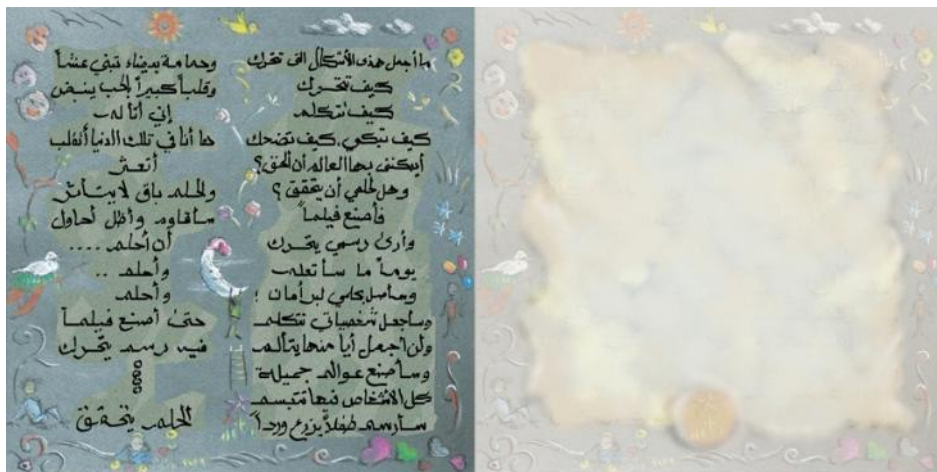 ما أجمل هذى الأشكال التى تتحرك
كيف تتحرك
كيف تتكلم
كيف تبكي، كيف تضحك
أيمكننى بهذا العالم أن ألحق؟
وهل لحلمي أن يتحقق؟
فأصنع فيلماً
وأرى رسمي يتحرك
يوماً ما سأتعلم
وسأصل بحلمي لبر أمان!
وسأجعل شخصياتي تتكلم
ولن أجعل أيا منها يتألم
وسأصنع عوالم جميلة
كل الأشخاص فيها تبتسم
سأرسم طفلاً يزرع ورداً
وحمامة بيضاء تبني عشاً
وقلباً كبيراً بالحب ينبض
إني أتألم
ها أنا في تلك الدنيا أتقلب
أتعثر
والحلم باق لا يتأثر
سأقاوم وأظل أحاول
أن أحلم ....
وأحلم ..
وأحلم
حتى أصنع فيلماً
فيه رسم يتحرك
الحلم يتحقق